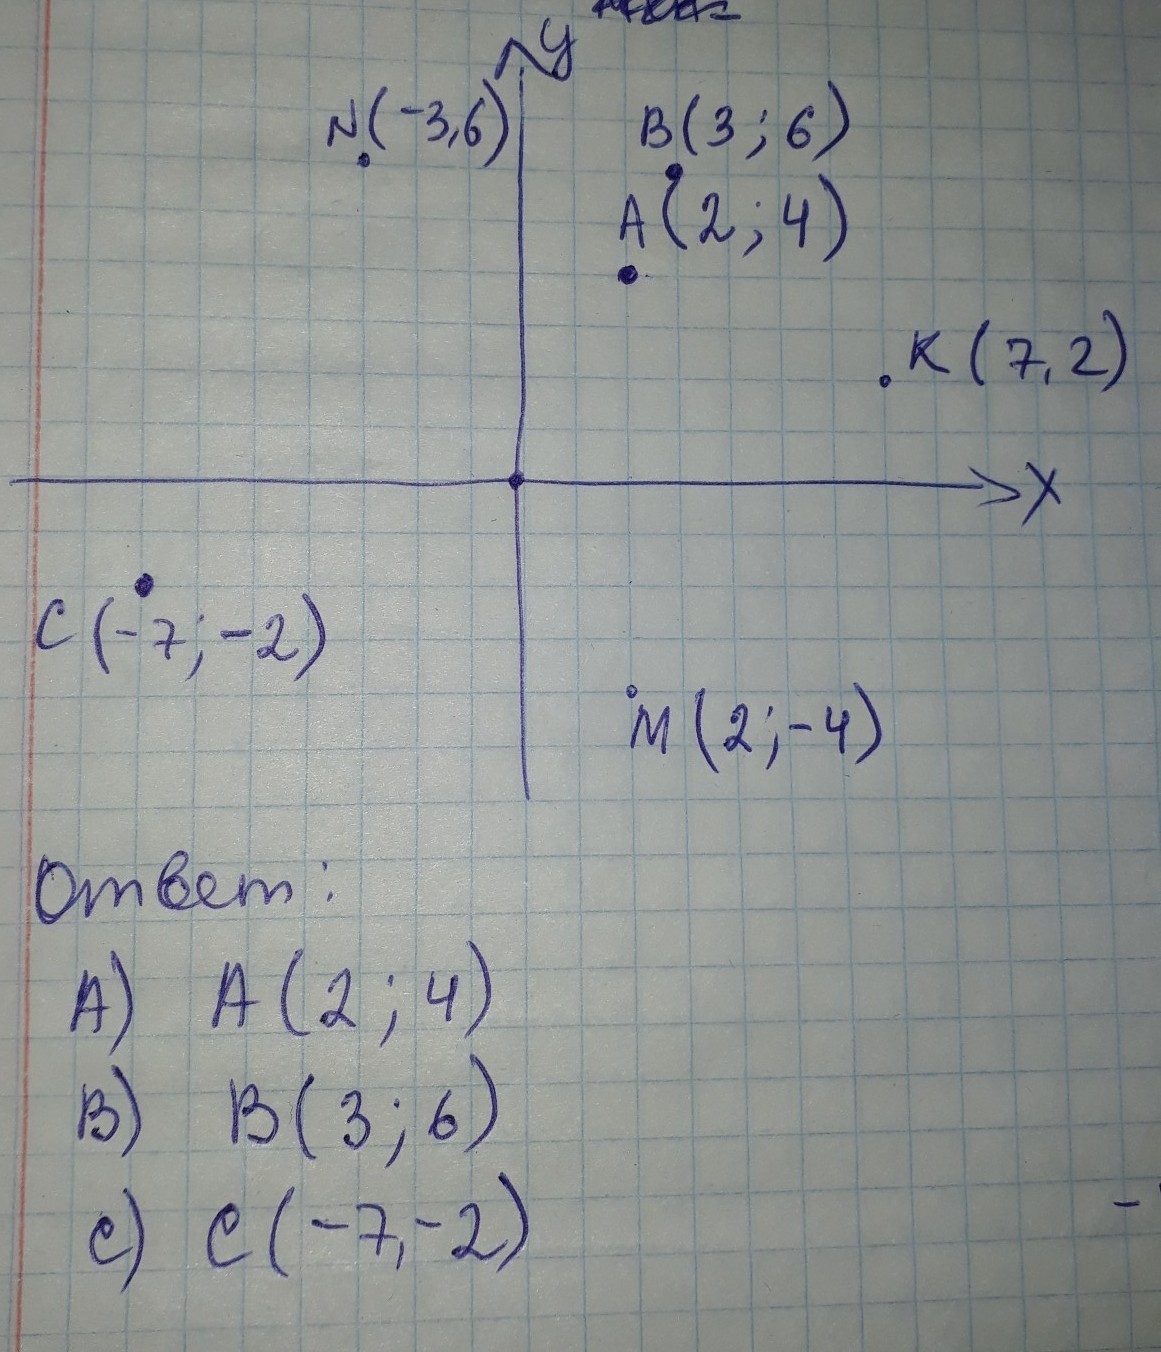 y
N(-3,6)
B(3;6)
A(2;4)
K(7,2)
X
C(-7;-2)
M(2;-4)
Ответ:
A) A(2;4)
B) B(3;6)
C) C(-7,-2)